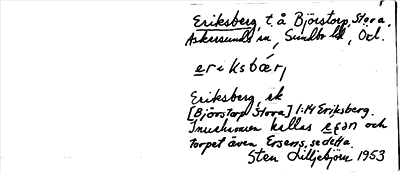 Eriksberg, t. å Björstorp, Stora,
Askersunds sn, Sundbo hd, Öd.
eriksbær,
Eriksberg, sk
[Björstorp Stora] 1:14 Eriksberg.
Inushusen kallas och
torpet även Ersens, se detta.
Sten Lilljebjörn 1953